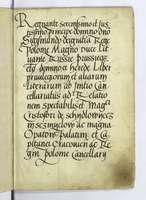 Regnante serenissimo et Jus
tissimo principe domino dno
Sigismundo dei gratia Rege
polonie Magno Duce Lit
tuanie Russie prussieqz
etc domino et herede Liber
privilegiorum et aliarum
literarum ab Initio Can
cellariatus ad Relatio
nem spectabilis et Magci
Cristoferi de schydlowyecz
in
ac magna
Opatow palatini et Ca
pitanei Cracovien ac Re
gni polonie Cancellarij